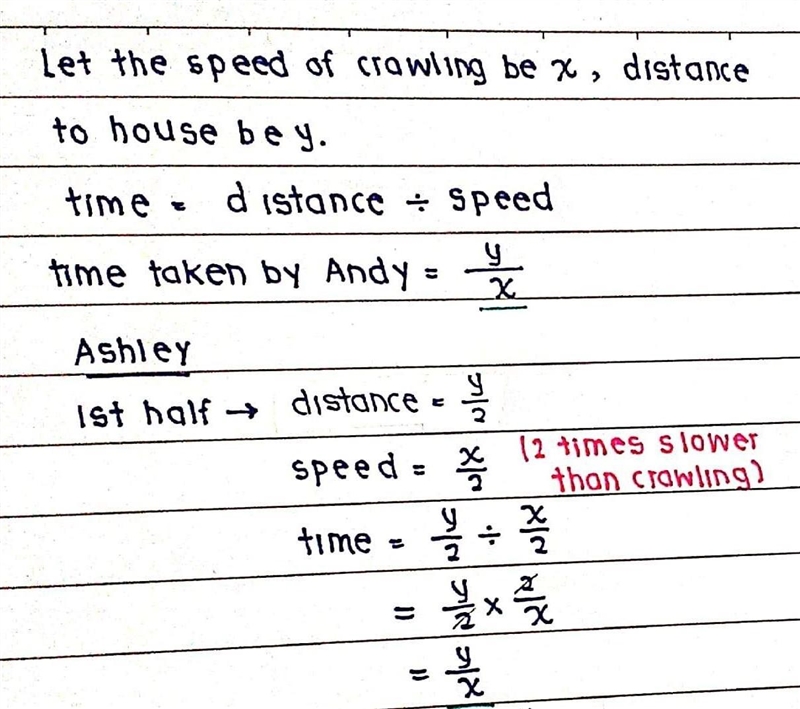 Let the speed of crawling be x, distance
to house be y.
time = distance ÷ speed
time taken by Andy = y/x
Ashley
1st half → distance = y/2
speed = x/2 (2 times slower than crawling)
time = y/2 ÷ x/2
= y/2 × 2/x
= y/x